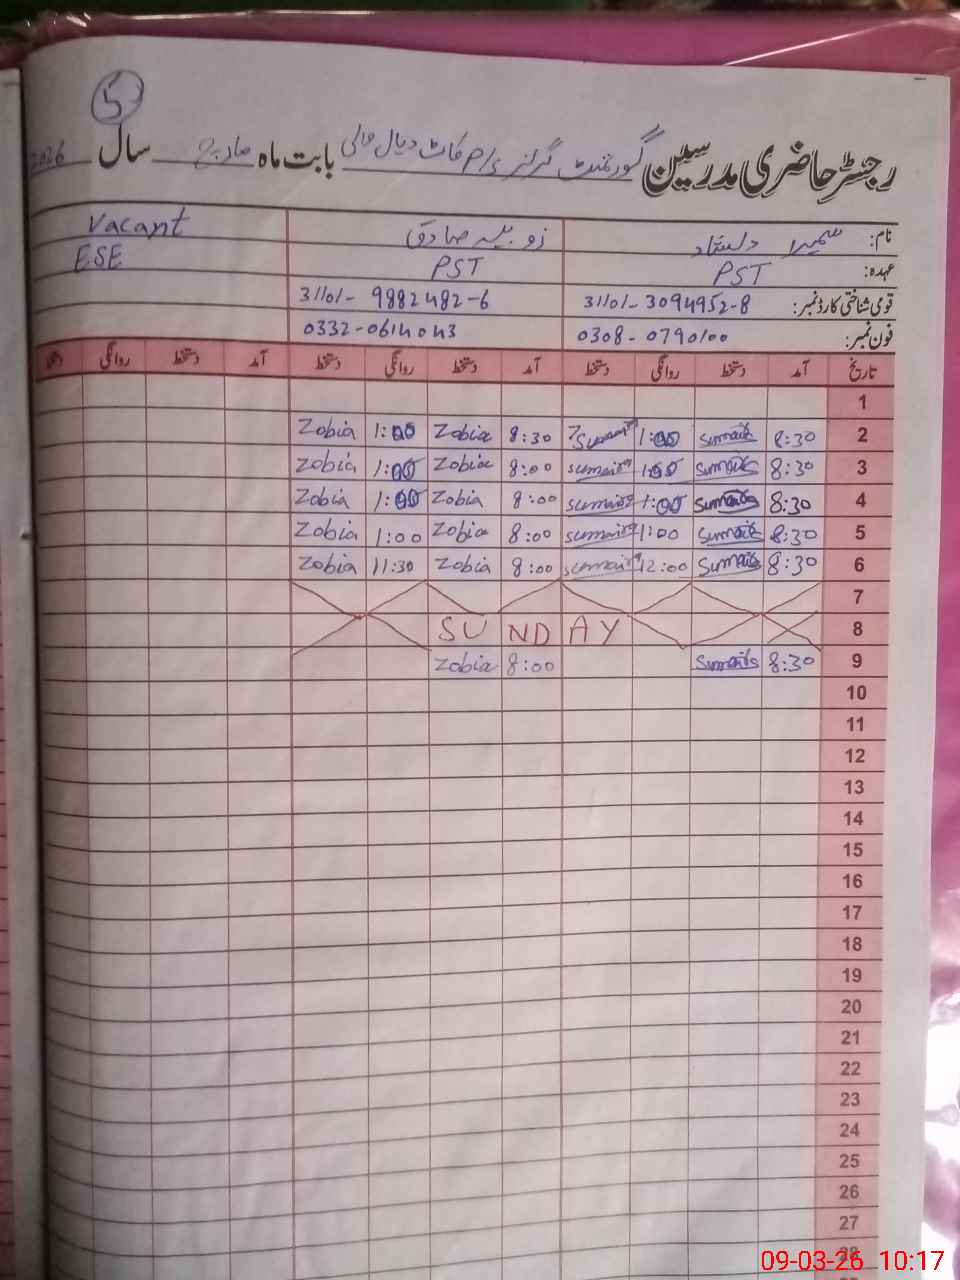 5
رجسٹر حاضری مدرسین گورنمنٹ گرلز بابت ماہ مارچ سال 2026
نام: سمیرا دلشاد زوبیہ صادق Vacant
عہدہ: PST PST ESE
قومی شناختی کارڈ نمبر: 31101-3094952-8 31101-9882482-6
فون نمبر: 0308-0790100 0332-0614043
تاریخ آمد دستخط روانگی دستخط آمد دستخط روانگی دستخط آمد دستخط روانگی دستخط
1
2 8:30 Sumaira 1:00 Sumaira 8:30 Zobia 1:00 Zobia
3 8:30 Sumaira 1:00 Sumaira 8:00 Zobia 1:00 Zobia
4 8:30 Sumaira 1:00 Sumaira 8:00 Zobia 1:00 Zobia
5 8:30 Sumaira 1:00 Sumaira 8:00 Zobia 1:00 Zobia
6 8:30 Sumaira 12:00 Sumaira 8:00 Zobia 11:30 Zobia
7
8 SUNDAY
9 8:30 Sumaira 8:00 Zobia
10
11
12
13
14
15
16
17
18
19
20
21
22
23
24
25
26
27
28
09-03-26 10:17